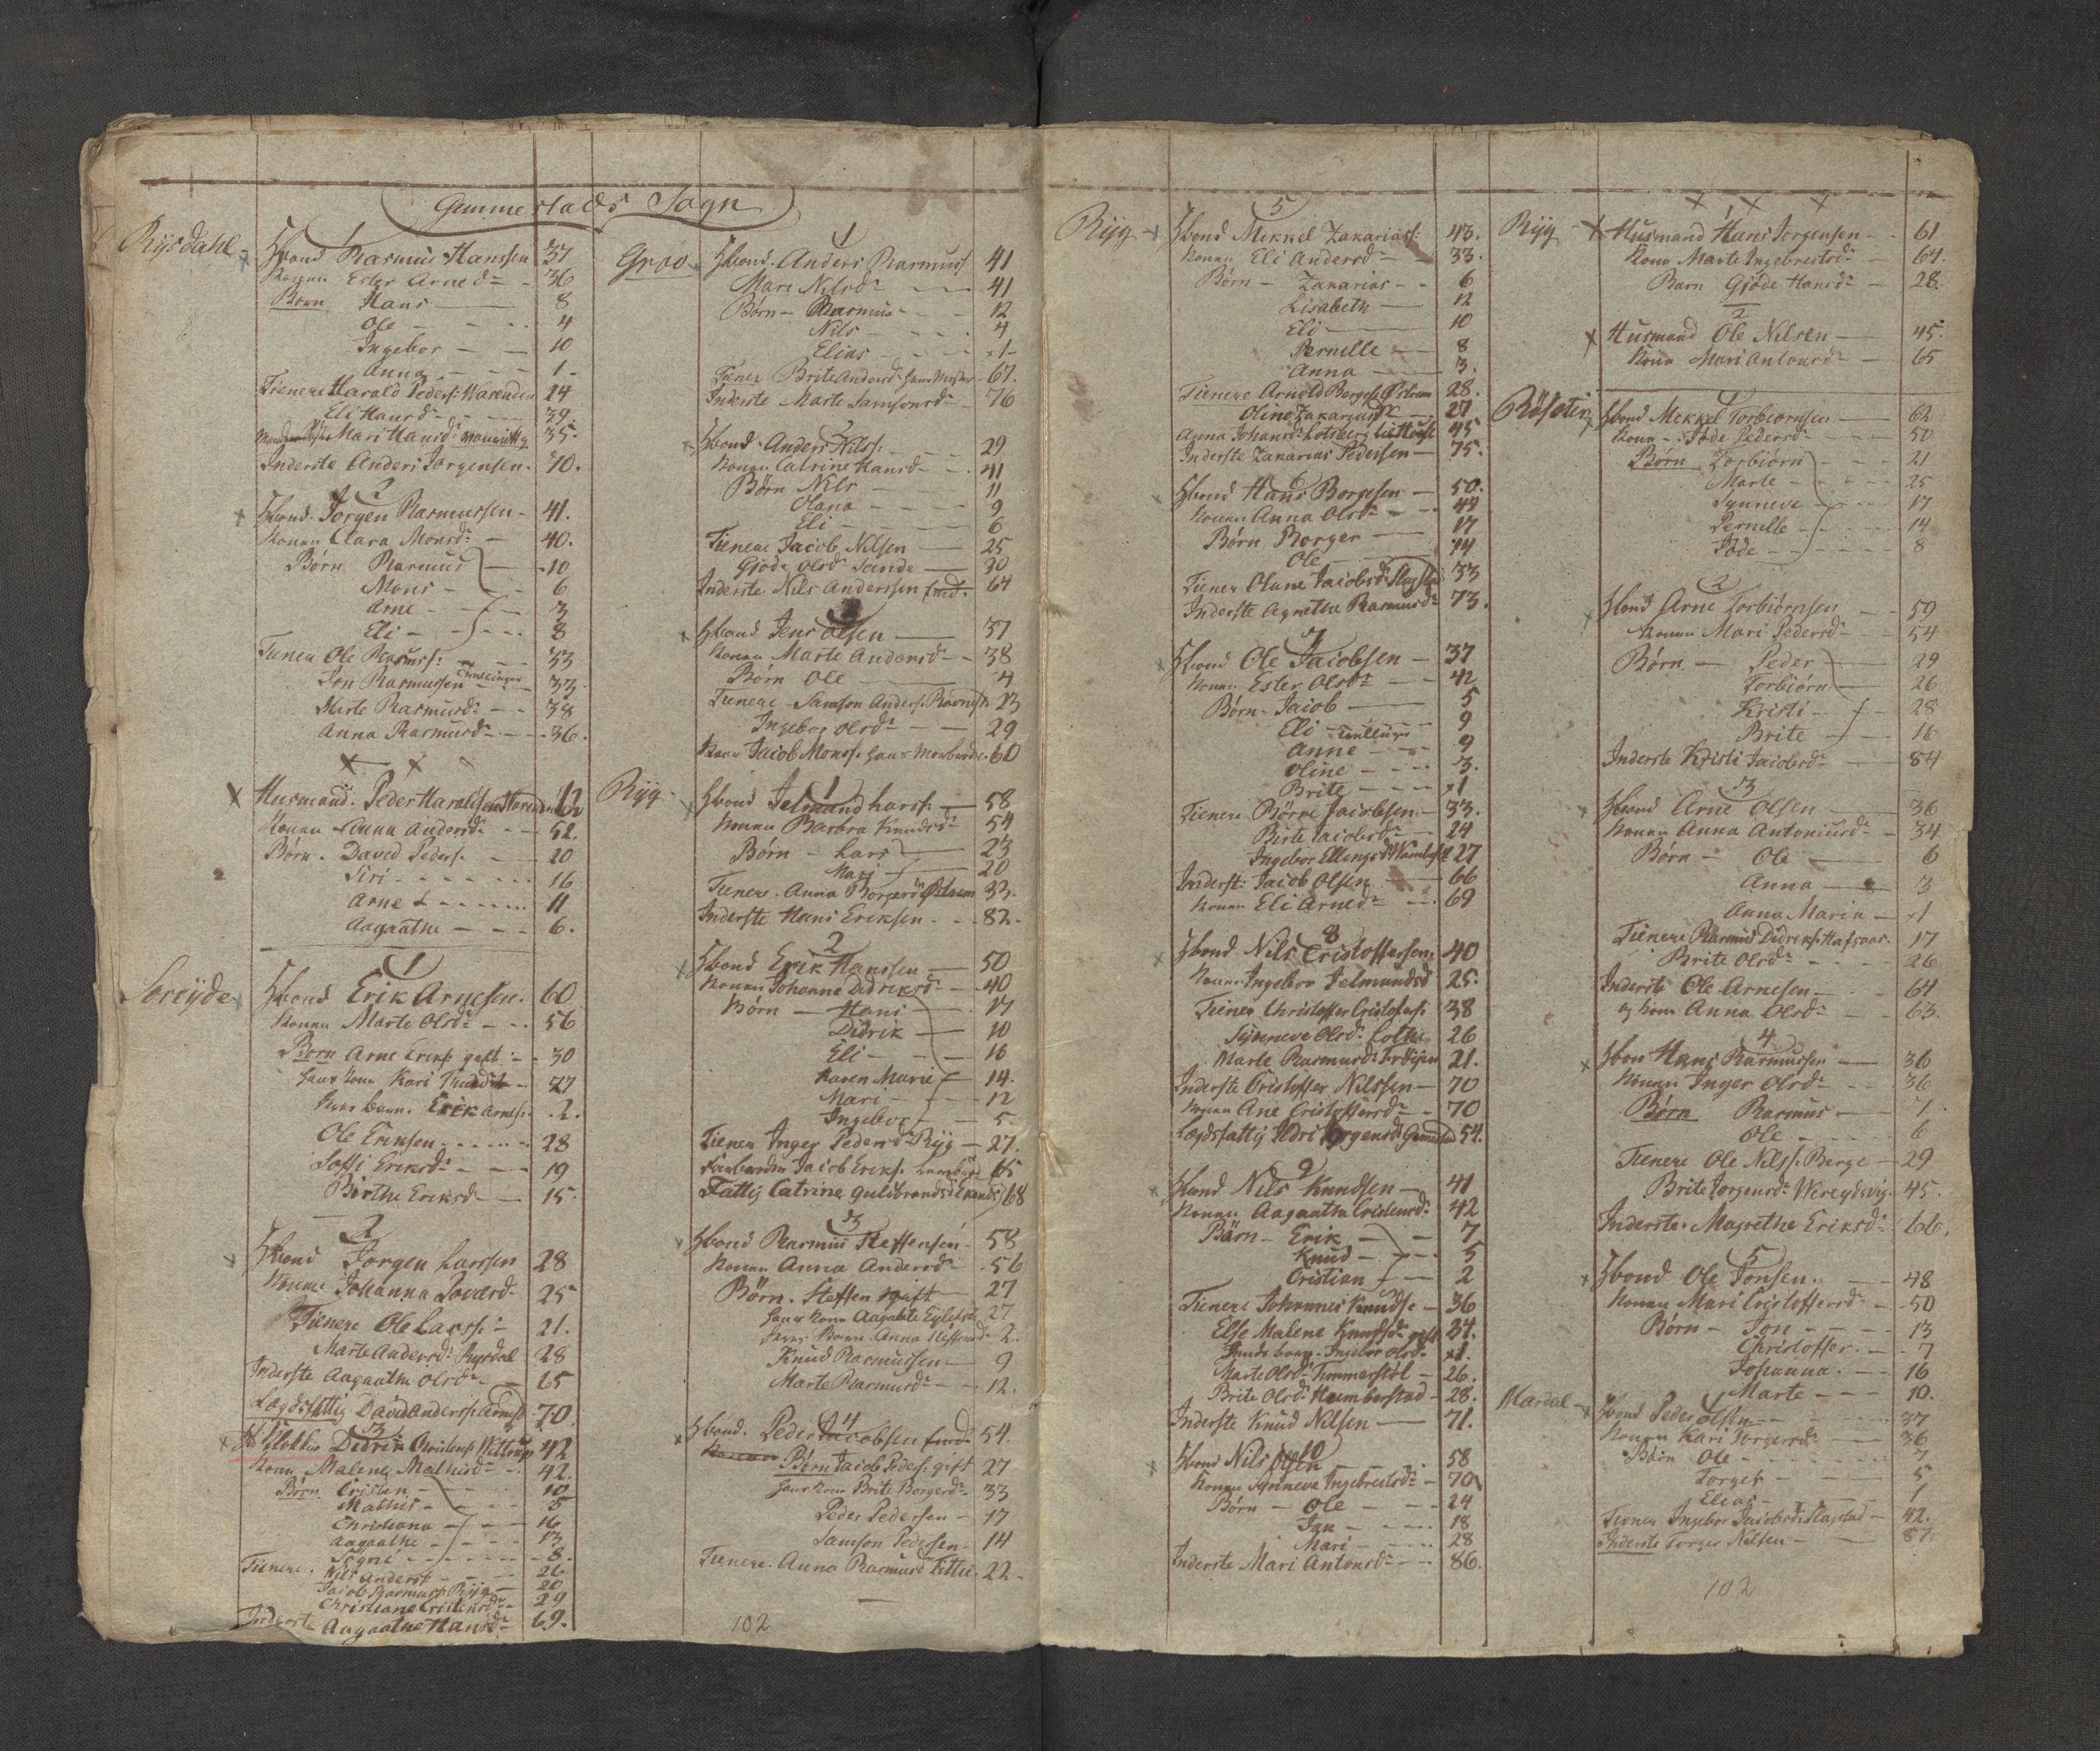 Gimmestads Sogn
Rÿsdahl
1
Hbond Rasmus Hanssen 37
Konen Ester Arnedr 36
Børn Hans 8
Ole 4
Ingebor 10
Anna 1
Tienere Harald Peders: 24
Eli Hansdr 39
Mari Hansdr 35
Inderste Anders Jorgensen 70
2
Hbond Jorgen Rasmussen 41
Konen Clara Monsdr 40
Børn Rasmus 10
Mons 6
Arne 3
Eli 8
Tiener Ole Rasmuss: 53
Jon Rasmussen 33
Marte Rasmusdr 38
Anna Rasmusdr 36
Husmand Peder Haraldsen
Konen Anna Andersdr 52
Børn David Peders. 20
Siri 16
Arne 11
Aagaathe 6
Søreÿde
1
Hbond Erik Arnesen 60
Konen Marte Olsdr 56
Børn Arne Eriks gift 30
Hans Kone Kari 27
Erik Arnes. 2
Ole Eriksen 28
Soffi Eriksdr 19
Birthe Eriksd 15
2
Hbond Jorgen Larssen 28
Konen Johanna 25
Tienere Ole Larss: 21
Marte Andersdr Rysdal 28
Inderste Aagaathe Olsdr 65
Lægdsfattig David Anderss: 70
3
Klokker Didrik Christens: 42
Kone Malene Mathisdr 42
Børn Cristen 10
Mathis 5
Christiana 16
Aagaathe 13
Signi 8
Tienere Nils Anders: 26
Jacob Rasmuss: Rÿg 20
Christiane Cristensdr 29
Inderste Aagaathe Hansdr 69
Grov
1
Hbond Anders Rasmuss 41
Mari Nilsdr 41
Børn Rasmus 12
Nils 4
Elias 1
Tiener Brite Andersdr 67
Inderste Marte Samsonsdr 76
2
Hbond Anders Nilss: 29
Konen Catrine Hansd 41
Børn Nils 11
Olana 9
Eli 6
Tienere Jacob Nilsen 25
Gjøde Olsdr Sande 30
Inderste Nils Anderssen 64
3
Hbond Jens Olsen 37
Konen Marte Andersdr 38
Børn Ole 4
Tienere Samson Anders. 23
Ingebor Olsdr 29
Jacob Monss. 60
Rÿg
1
Hbond Jelmund Larss. 58
Konen Barbra Knudsdr 54
Børn Lars 23
Mari 20
Tienere Anna Borgersdr 33
Inderste Hans Eriksen 82
2
Hbond Erik Hanssen 50
Konen Johanne Didriksdr 40
Børn Hans 17
Didrik 10
Eli 16
Karen Marie 14
Mari 12
Ingebor 5
Tiener Inger Pedersdr Rÿg 27
Jacob Eriks. 65
Fattig Catrine Guldbrandsd 68
3
Hbond Rasmus Steffensen 58
Konen Anna Andersdr 56
Børn Steffen gift 27
Hans Kone Aagaate 27
Anna Steffensdr 2
Knud Rasmussen 9
Marte Rasmusdr 12
4
Hbond Peder Jacobsen 54
Børn Jacob Peders. gift 27
Hans Kone Brite Borgerdr 33
Peder Pedersen 17
Samson Pedersen 14
Tienere Anna Rasmusdr 22
102
Rÿg
5
Hbond Mekkel Zakariass: 43
Konen Eli Andersdr 33
Børn Zakarias 6
Lisabeth 12
Eli 10
Pernelle 8
Anna 3
Tienere Arnold 28
Oline Zakariasdr 27
Anna Johansdr 45
Inderste Zakarias Pedersen 75
6
Hbond Hans Borgesen 50
Konen Anna Olsdr 44
Børn Borger 17
Ole 14
Tiener Oluna Jacobsdr 33
Inderste Agnethe Rasmusdr 73
7
Hbond Ole Jacobsen 37
Konen Ester Olsdr 42
Børn Jacob 5
Eli 9
Anne 9
Oline 3
Brite 1
Tienere Børne Jacobsen 33
Birte Jacobsdr 24
Ingebor Ellingsdr 27
Inderst: Jacob Olsen 66
Konen Eli Arnedr 69
8
Hbond Nils Cristoffersen 40
Konen Ingebor Jelmundsd 25
Tiener Christoffer Cristofers: 38
Sÿnneve Olsdr Lothe 26
Marte Rasmusdr 21
Inderste Cristoffer Nilssen 70
Konen Ane Cristoffersdr 70
Lægdsfattig Ildri Jorgensdr 54
9
Hbond Nils Knudsen 41
Konen Aagaatha Cristensdr 42
Børn Erik 7
Knud 5
Cristian 2
Tienere Johannes Knuds: 36
Else Malene Knudsdr 34
Ingebor Olsdr 1
Marte Olsdr 26
Brite Olsdr Hemberstad 28
Inderste Knud Nilsen 71
10
Hbond Nils Olsen 58
Konen Sÿnneve Ingebretsdr 70
Børn Ole 24
Jan 18
Mari 28
Inderste Mari Antonsdr 86
Rÿg
1
Husmand Hans Jorgensen 61
Kone Marte Ingebretsdr 64
Barn Gjøde Hansdr 28
2
Husmand Ole Nilsen 45
Kone Mari Antonsdr 65
Røseten
Hbond Mekkel Torbiørnsen 62
Kone Jøde Pedersdr 50
Børn Torbiørn 21
Marte 25
Synneve 17
Pernille 14
Jøde 8
2
Hbond Arne Torbiørnsen 59
Konen Mari Pedersdr 54
Børn Peder 29
Torbiørn 26
Kristi 28
Brite 16
Inderste Kristi Jacobsdr 84
3
Hbond Arne Olsen 36
Konen Anna Antoniusdr 34
Børn Ole 6
Anna 3
Anna Maria 1
Tienere Rasmus Didriks. 17
Brite Olsdr 26
Inderste Ole Arnesen 64
og Kone Anna Olsdr 63
4
Hbon Hans Rasmussen 36
Konen Inger Olsdr 36
Børn Rasmus 7
Ole 6
Tienere Ole Nilss. Berge 29
Brite Jorgensdr 45
Inderste Magrethe Eriksdr 66
5
Hbond Ole Jonsen 48
Konen Mari Cristoffersdr 50
Børn Jon 13
Christoffer 7
Johanna 16
Marte 10
Mardal
Hbond Peder Olsen 37
Konen Kari Torgersdr 36
Børn Ole 7
Torger 5
Elias 1
Tiener Ingebor Jacobsdr Slagstad 42
Inderste Torger Nilsen 87
102